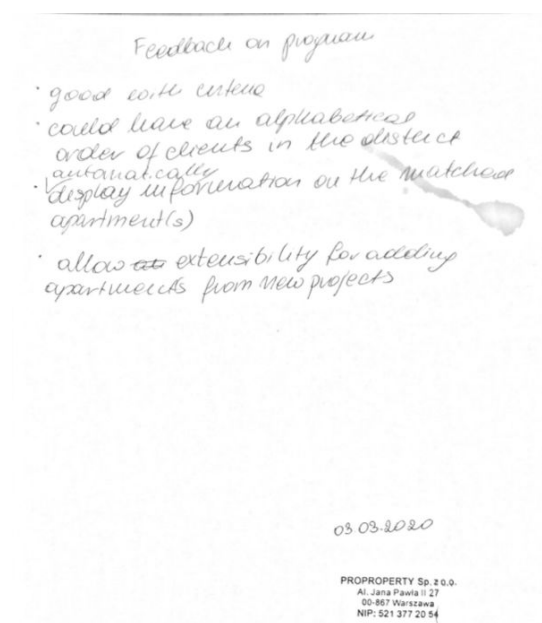 Feedback on program
· good with criteria
· could have an alphabetical
order of clients in the district
automatically
· display information on the matched
apartment(s)
· allow extensibility for adding
apartments from new projects
03.03.2020
PROPROPERTY Sp. z o.o.
Al. Jana Pawła II 27
00-867 Warszawa
NIP: 521 377 20 54